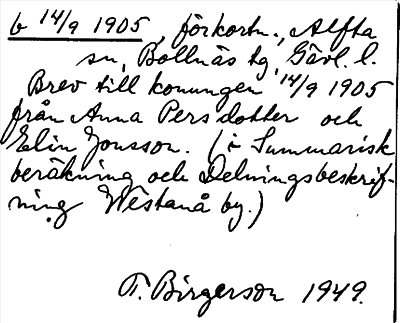 b 14/9 1905, förkortn., Alfta
sn, Bollnäs tg, Gävl. l.
Brev till konungen 14/9 1905
från Anna Persdotter och
Elin Jonsson. (i Summarisk
beräkning och Delningsbeskrif-
ning Westanå by.)
T. Birgerson 1949.